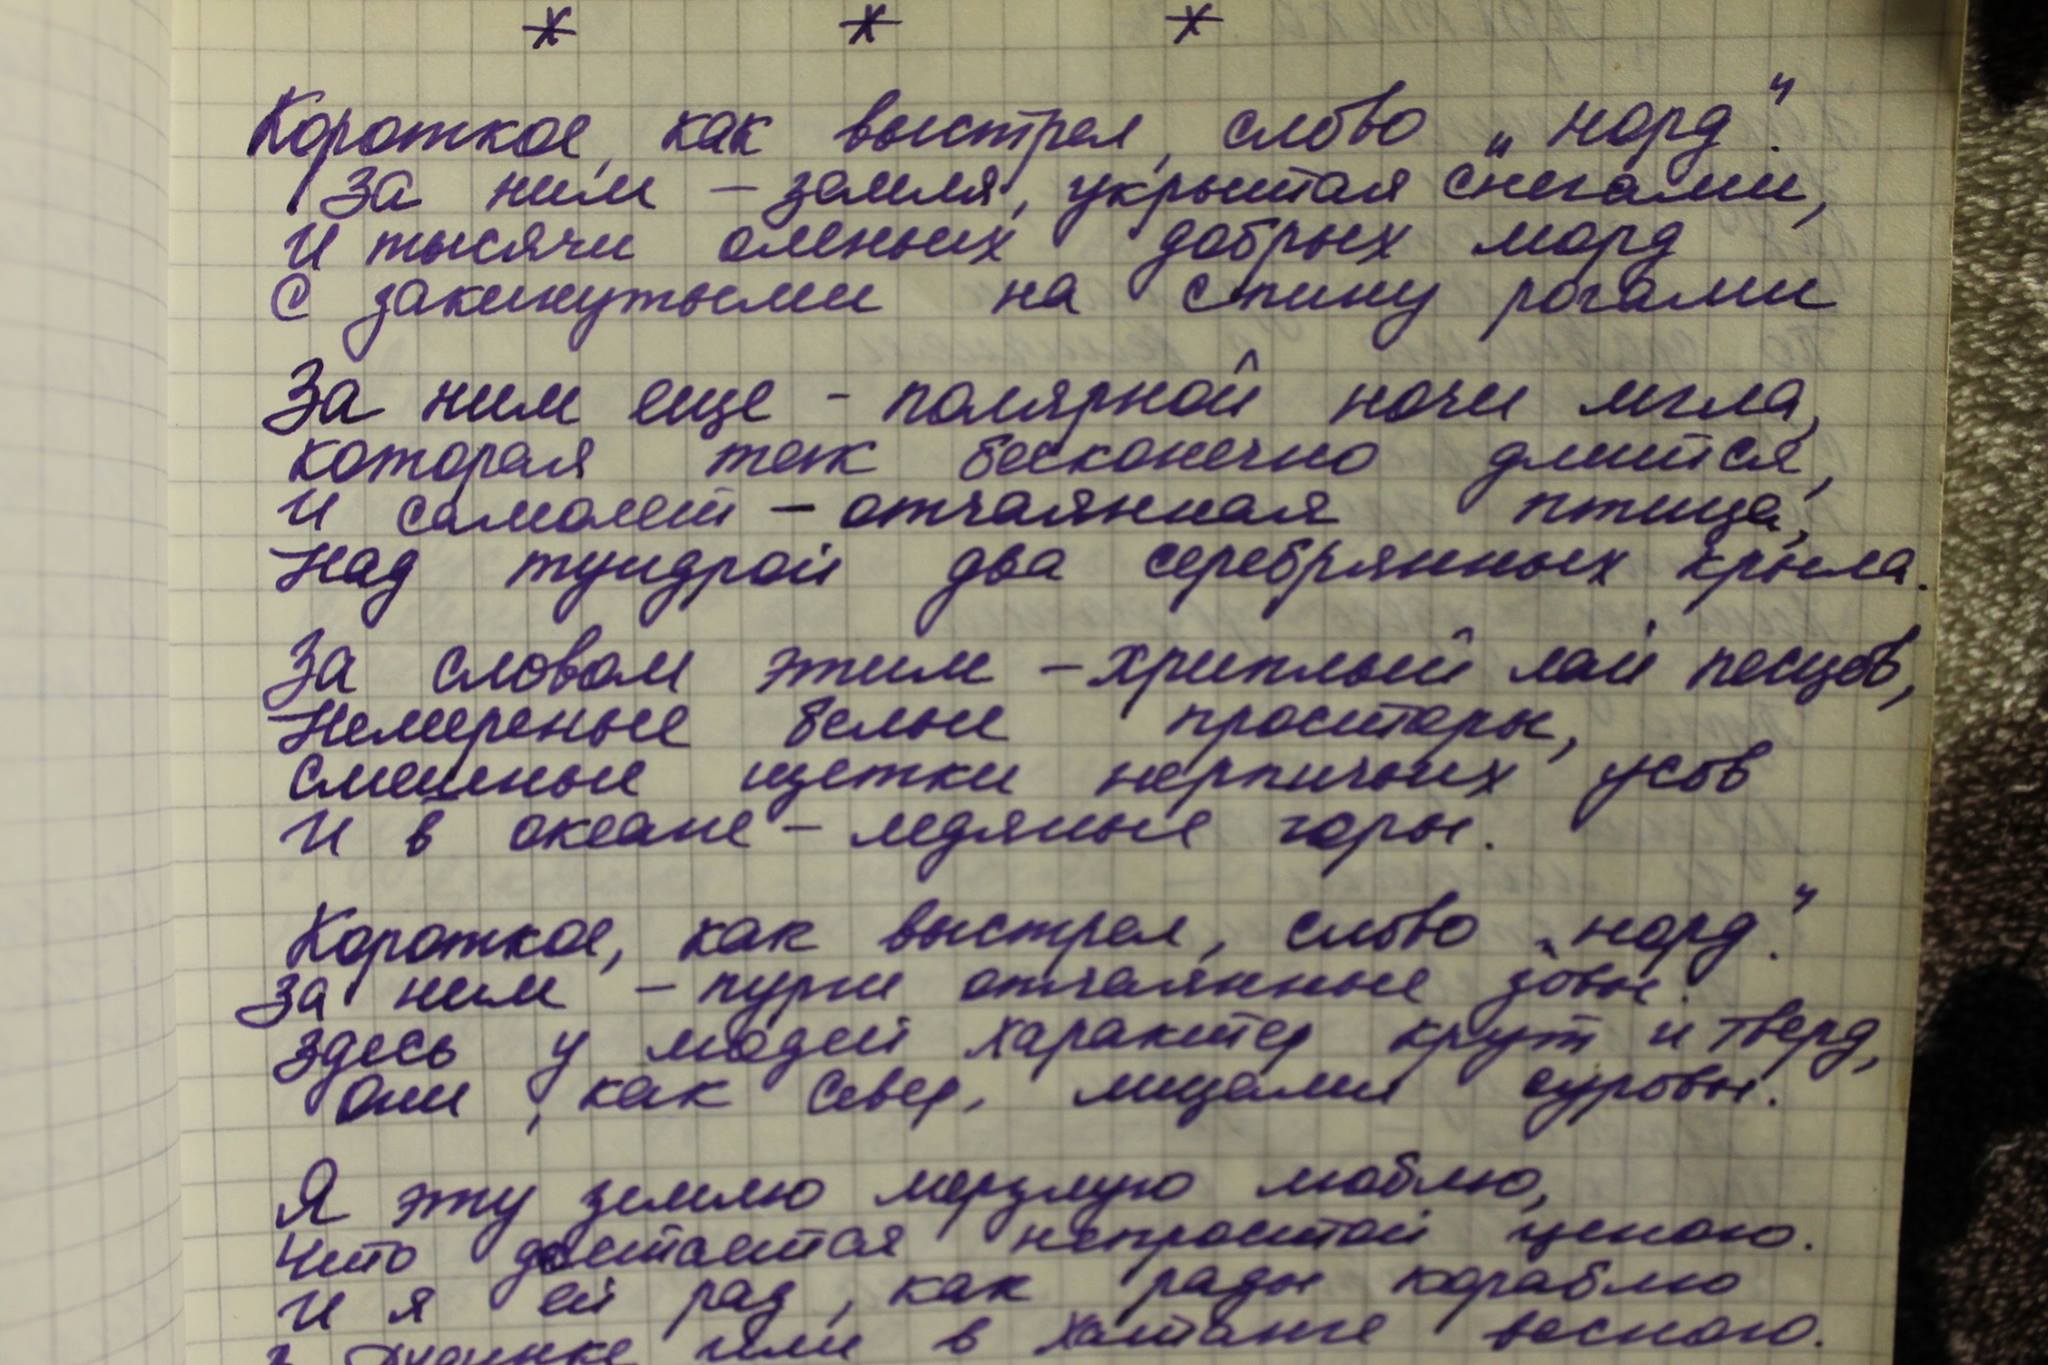 * * *
Короткое, как выстрел, слово „норд".
За ним – земля, укрытая снегами,
И тысячи оленьих добрых морд
С закинутыми на спину рогами
За ним еще – полярной ночи мгла,
которая так бесконечно длится,
И самолет – отчаянная птица,
Над тундрой два серебрянных крыла.
За словом этим – хриплый лай песцов,
Немереные белые просторы,
Смешные щетки нерпичьих усов
И в океане – ледяные горы.
Короткое, как выстрел, слово „норд".
За ним – пурги отчаянные зовы.
Здесь у людей характер крут и тверд,
Они, как Север, лицами суровы.
Я эту землю мерзлую люблю,
Что достается непростой ценою.
И я ей рад, как рады кораблю
в Дудинке или в Хатанге весною.